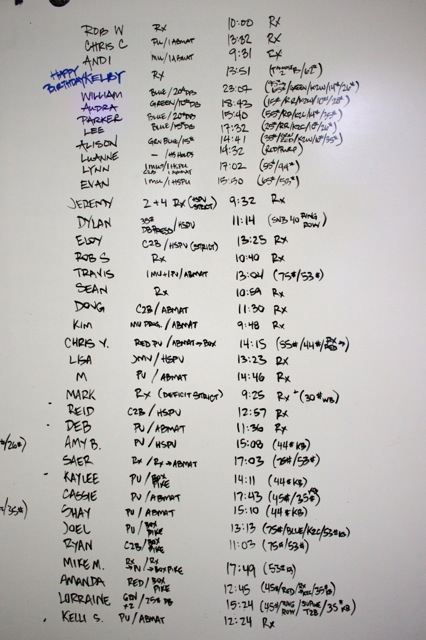 ROB W RX 10:00 RX
CHRIS C PU/ABMAT 13:32 RX
ANDI MU/ABMAT 9:31 RX
HAPPY BIRTHDAY KELBY RX 13:51
WILLIAM BLUE/20#DB 23:07
AUDRA GREEN/10#DB 18:43
PARKER BLUE/20#DB 15:40
LEE BLUE/15#DB 17:32
ALISON GRN BLUE/15# 14:41
LUANNE 14:32
LYNN 17:02 (55#/44#)
EVAN 1MU/HSPU 15:30 (65#/53#)
JEREMY 2+4 RX (HSPU STRICT) 9:32 RX
DYLAN 35# DB PRESS/HSPU 11:14 (SUB 40 RING ROW)
ELOY C2B/HSPU (STRICT) 13:25 RX
ROB S RX 10:40 RX
TRAVIS 1MU+1PU/ABMAT 13:04 (75#/53#)
SEAN RX 10:59 RX
DOUG C2B/ABMAT 11:30 RX
KIM MU PROG./ABMAT 9:48 RX
CHRIS Y. RED PU/ABMAT→BOX 14:15 (55#/44#/RX→RED)
LISA JMU/HSPU 13:23 RX
M PU/ABMAT 14:46 RX
MARK RX (DEFICIT STRICT) 9:25 RX+(30#WB)
REID C2B/HSPU 12:57 RX
DEB PU/ABMAT 11:36 RX
/26#) AMY B. PU/HSPU 15:08 (44#KB)
SAER RX/RX→ABMAT 17:03 (75#/53#)
KAYLEE PU/BOX PIKE 14:11 (44#KB)
CASSIE PU/ABMAT 17:43 (45#/35#KB)
/35#) SHAY PU/ABMAT 15:10 (44#KB)
JOEL PU/BOX PIKE 13:13 (75#/BLUE/K2C/53#KB)
RYAN C2B/BOX PIKE 11:03 (75#/53#)
MIKE M. RX→PU/RX→BOX PIKE 17:49 (53#KB)
AMANDA RED/BOX PIKE 12:45
LORRAINE GRN x2/25# DB 15:24
KELLI S. PU/ABMAT 12:24 RX